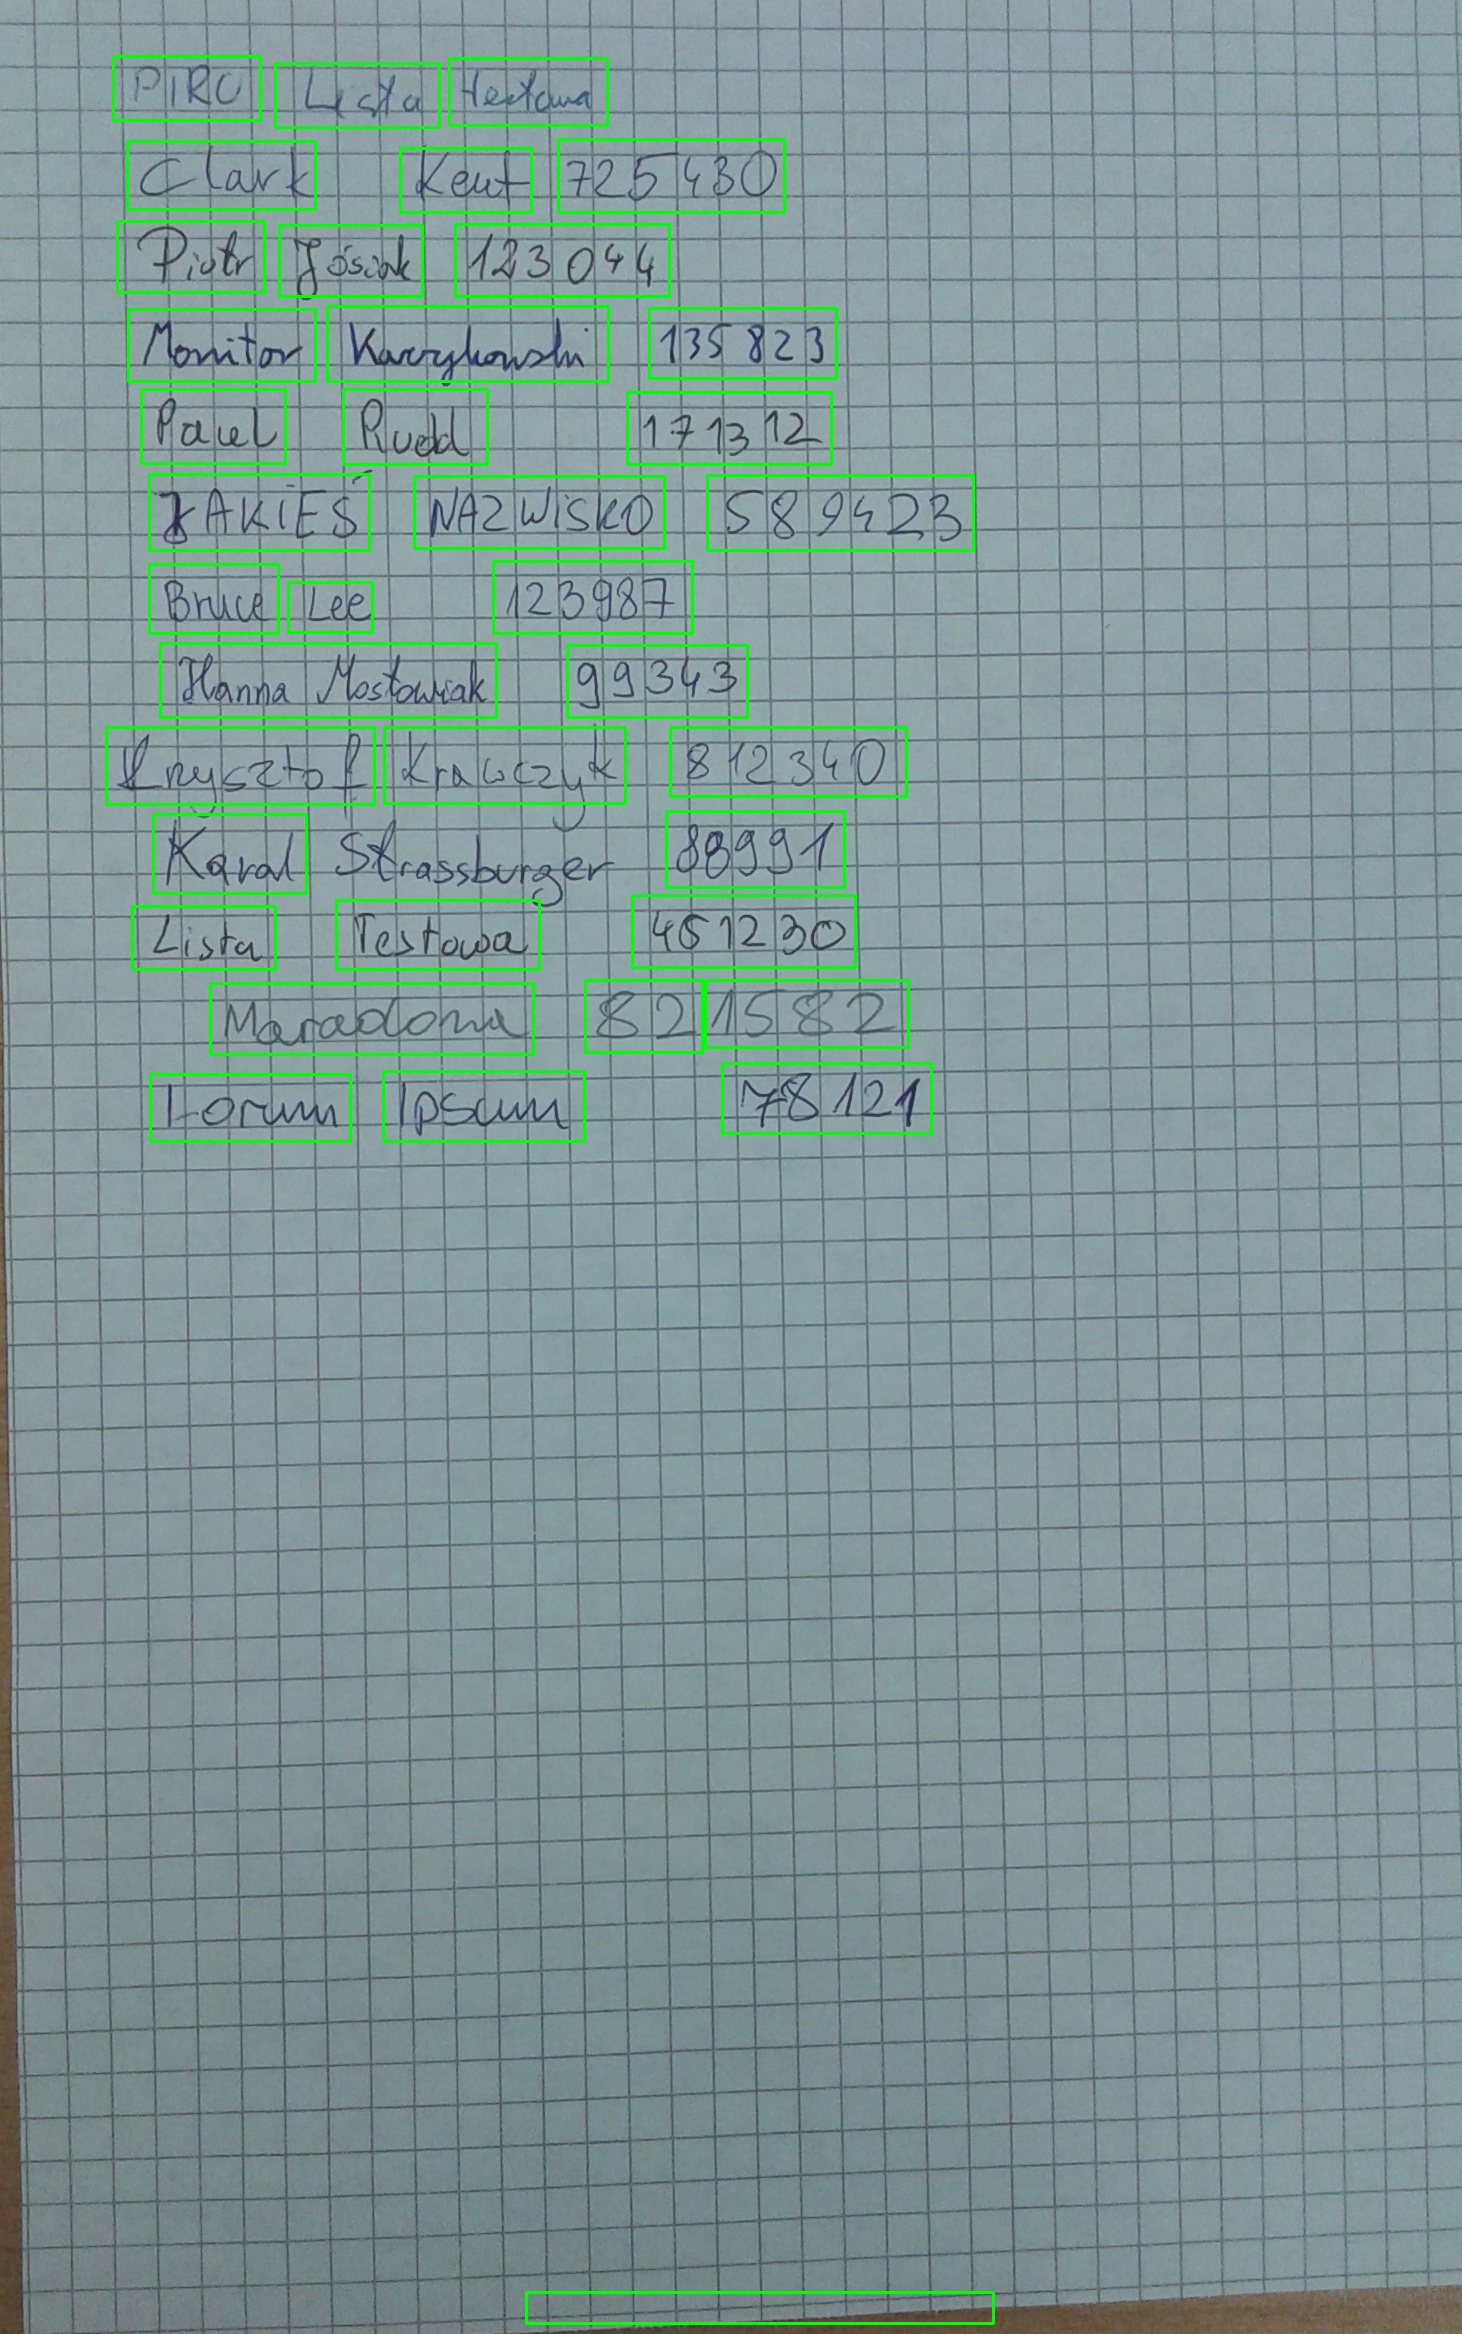 PIRO Lista Testowa
Clark Kent 725430
Piotr Jósiak 123044
Monitor Karczykowski 135823
Paweł Rudd 171312
JAKIEŚ NAZWISKO 589423
Bruce Lee 123987
Hanna Mostowiak 99343
Krysztof Krawczyk 812340
Karol Strassburger 88991
Lista Testowa 451230
Maradona 821582
Lorum Ipsum 78121